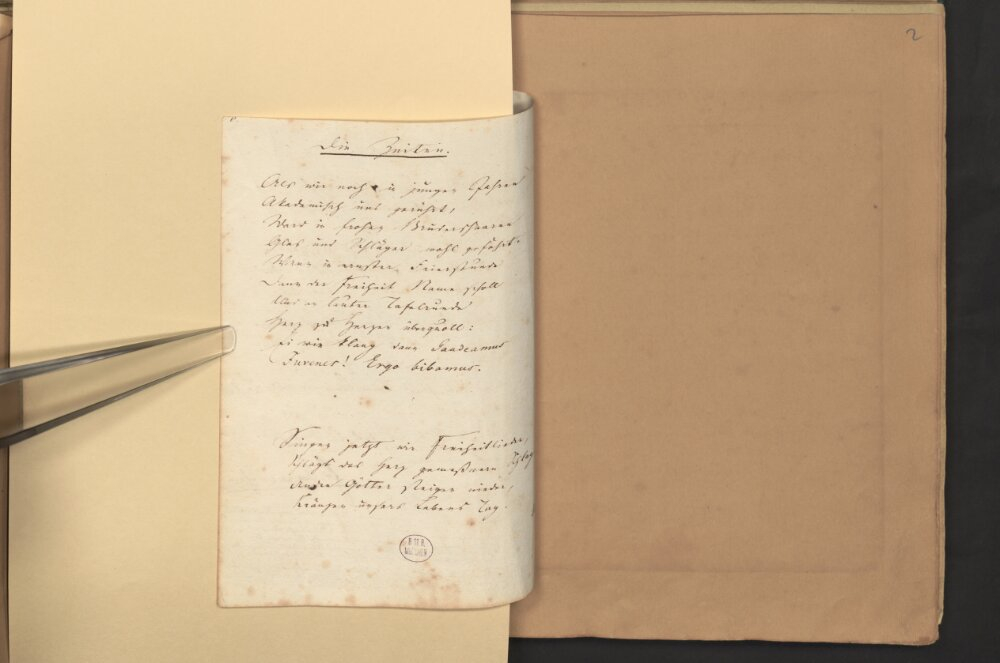 2
Die Zeiten.
Als wir noch in jungen Jahren
Akademisch uns gerührt,
Ward in frohen Bruderschaaren
Glas und Schläger wohl geführt.
Wenn in ernster Feierstunde
Dann der Freiheit Name scholl
Alles an lauter Tafelrunde
Herz zu Herzen überquoll:
Ei wie klang dann Gaudeamus
Juvenes! Ergo bibamus.
Singen jetzt wir Freiheitlieder,
Schlägt das Herz gemeßnern Schlag
Andre Götter steigen nieder,
Kränzen unsers Lebens Tag.